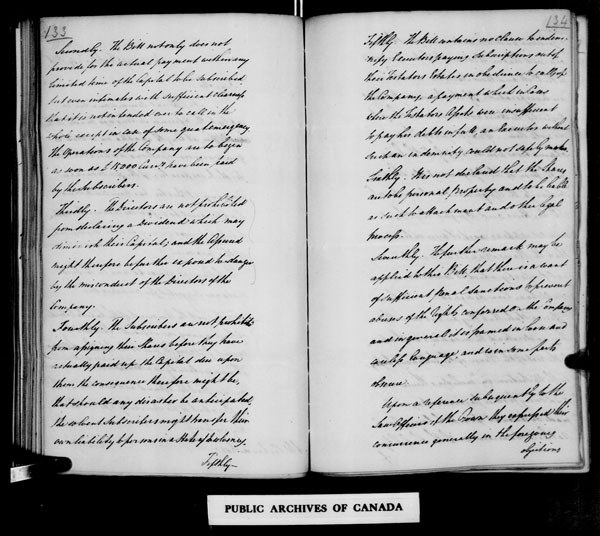 133
Secondly. The Bill not only does not
provide for the actual payment within any
limited time of the Capital to be Subscribed
but even intimates with sufficient clearness
that it is not intended ever to call in the
whole except in case of some great emergency
the Operations of the Company are to begin
as soon as £15000 Curr.y have been paid
by the Subscribers.
Thirdly. The Directors are not prohibited
from declaring a Dividend which may
diminish their Capital; and the Assured
might therefore be further exposed to danger
by the misconduct of the Directors of the
Company.
Fourthly. The Subscribers are not prohibited
from assigning their Shares before they have
actually paid up the Capital due upon
them the consequence therefore might be,
that should any disaster be anticipated
the solvent Subscribers might transfer their
own liability to persons in a State of Insolvency.
Fifthly
134
Fifthly. The Bill contains no Clause to indem-
nify Executors paying Subscriptions out of
their Testators Estates in obedience to calls of
the Company, a payment which in Cases
where the Testators Assets were insufficient
to pay his debts in full, an Executor without
such an indemnity could not safely make.
Sixthly. It is not declared that the Shares
are to be personal Property and to be liable
as such to attachment and other legal
process.
Seventhly. The further remark may be
applied to this Bill, that there is a want
of sufficient penal Sanctions to prevent
abuses of the Rights conferred on the Company
and in general it is framed in loose and
careless language, and is in some parts
obscure.
Upon a reference subsequently to the
Law Officers of the Crown they expressed their
concurrence generally in the foregoing
objections
PUBLIC ARCHIVES OF CANADA